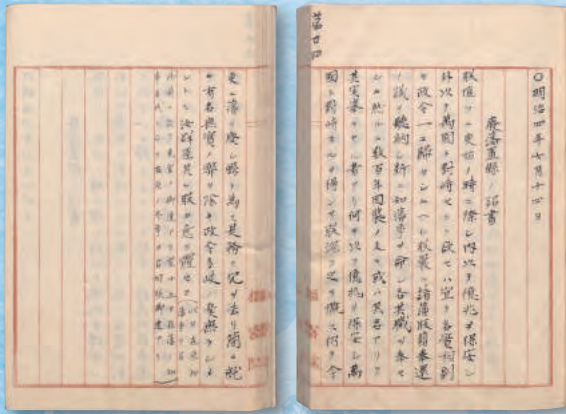 ○明治四年七月十四日
廢藩置縣ノ詔書
朕惟フニ更始ノ時ニ際シ内以テ億兆ヲ保安シ
外以テ萬國ト對峙セント欲セハ宜ク名實相副
ヒ政令一ニ歸セシムヘシ朕曩ニ諸藩版籍奉還
ノ議ヲ聽納シ新ニ知藩事ヲ命シ各其職ヲ奉セ
シム然ルニ數百年因襲ノ久キ或ハ其名アリテ
其實擧ラサル者アリ何ヲ以テ億兆ヲ保安シ萬
國ト對峙スルヲ得ンヤ朕深ク之ヲ慨ス仍テ今
第廿四
更ニ藩ヲ廢シ縣ト為ス是務テ冗ヲ去リ簡ニ就
キ有名無實ノ弊ヲ除キ政令多岐ノ憂無ラシメ
ントス汝群臣其レ朕カ意ヲ體セヨ